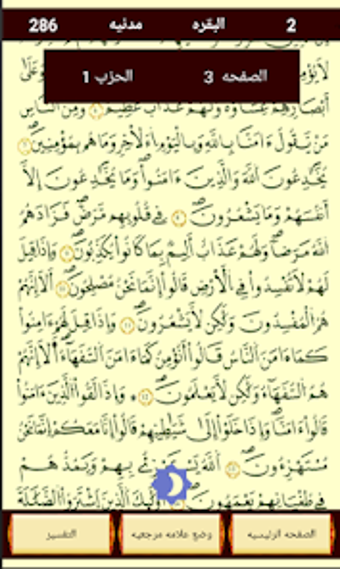 2 البقره مدنيه 286
الصفحه 3 الحزب 1
أَبْصَٰرِهِمْ غِشَٰوَةٌ وَلَهُمْ عَذَابٌ عَظِيمٌ ۝ وَمِنَ النَّاسِ
مَن يَقُولُ ءَامَنَّا بِاللَّهِ وَبِالْيَوْمِ الْءَاخِرِ وَمَا هُم بِمُؤْمِنِينَ ۝
يُخَٰدِعُونَ اللَّهَ وَالَّذِينَ ءَامَنُوا وَمَا يَخْدَعُونَ إِلَّا
أَنفُسَهُمْ وَمَا يَشْعُرُونَ ۝ فِي قُلُوبِهِم مَّرَضٌ فَزَادَهُمُ
اللَّهُ مَرَضًا وَلَهُمْ عَذَابٌ أَلِيمٌ بِمَا كَانُوا يَكْذِبُونَ ۝ وَإِذَا قِيلَ
لَهُمْ لَا تُفْسِدُوا فِي الْأَرْضِ قَالُوا إِنَّمَا نَحْنُ مُصْلِحُونَ ۝ أَلَا إِنَّهُمْ
هُمُ الْمُفْسِدُونَ وَلَٰكِن لَّا يَشْعُرُونَ ۝ وَإِذَا قِيلَ لَهُمْ ءَامِنُوا
كَمَا ءَامَنَ النَّاسُ قَالُوا أَنُؤْمِنُ كَمَا ءَامَنَ السُّفَهَاءُ أَلَا إِنَّهُمْ
هُمُ السُّفَهَاءُ وَلَٰكِن لَّا يَعْلَمُونَ ۝ وَإِذَا لَقُوا الَّذِينَ ءَامَنُوا
قَالُوا ءَامَنَّا وَإِذَا خَلَوْا إِلَىٰ شَيَٰطِينِهِمْ قَالُوا إِنَّا مَعَكُمْ إِنَّمَا نَحْنُ
مُسْتَهْزِءُونَ ۝ اللَّهُ يَسْتَهْزِئُ بِهِمْ وَيَمُدُّهُمْ
فِي طُغْيَٰنِهِمْ يَعْمَهُونَ ۝ أُولَٰئِكَ الَّذِينَ اشْتَرَوُا الضَّلَٰلَةَ
الصفحه الرئيسيه وضع علامه مرجعيه التفسير